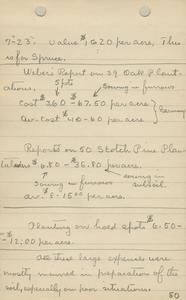 7-23. value $1620 per acre. This
is for Spruce.
Weber's Report on 39 Oak Plant-
ations.
Spots
Sowing in furrows
Cost $360 - $67.50 per acre.
Av. Cost $40-60 per acre.
Germany
Reports on 50 Scotch Pine Plan-
tations $6.80 - $56.80 per acre.
Sowing in furrows
sowing in subsoil.
av. 8-15.00 per acre.
Planting on hard spots $6.50-
-$12.00 per acre.
All these large expenses were
mostly incurred in preparation of the
soil, especially on poor situations.
50